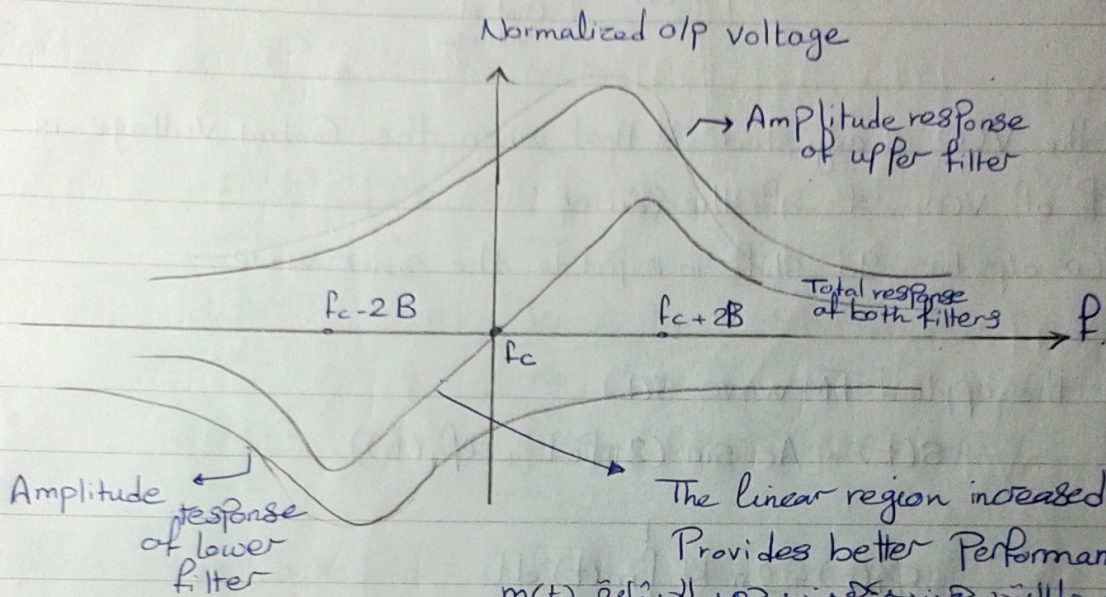 Normalized o/p voltage
→ Amplitude response
of upper filter
fc - 2B
fc + 2B
Total response
of both filters
f
fc
Amplitude
response
of lower
filter
The linear region increased
Provides better Performan
m(t)